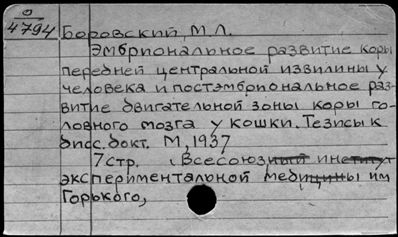 0
4794
Боровский, М.Л.
Эмбриональное развитие коры
передней центральной извилины у
человека и постэмбриональное раз-
витие двигательной зоны коры го-
ловного мозга у кошки. Тезисы к
дисс. докт. М, 1937
7 стр. (Всесоюзный институт
экспериментальной медицины им
Горького,